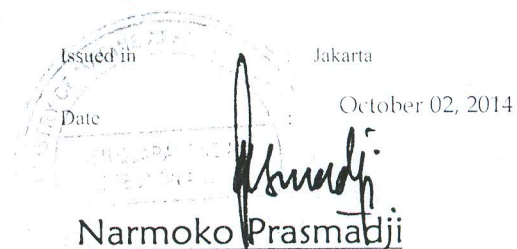 Issued in : Jakarta
Date : October 02, 2014
Narmoko Prasmadji